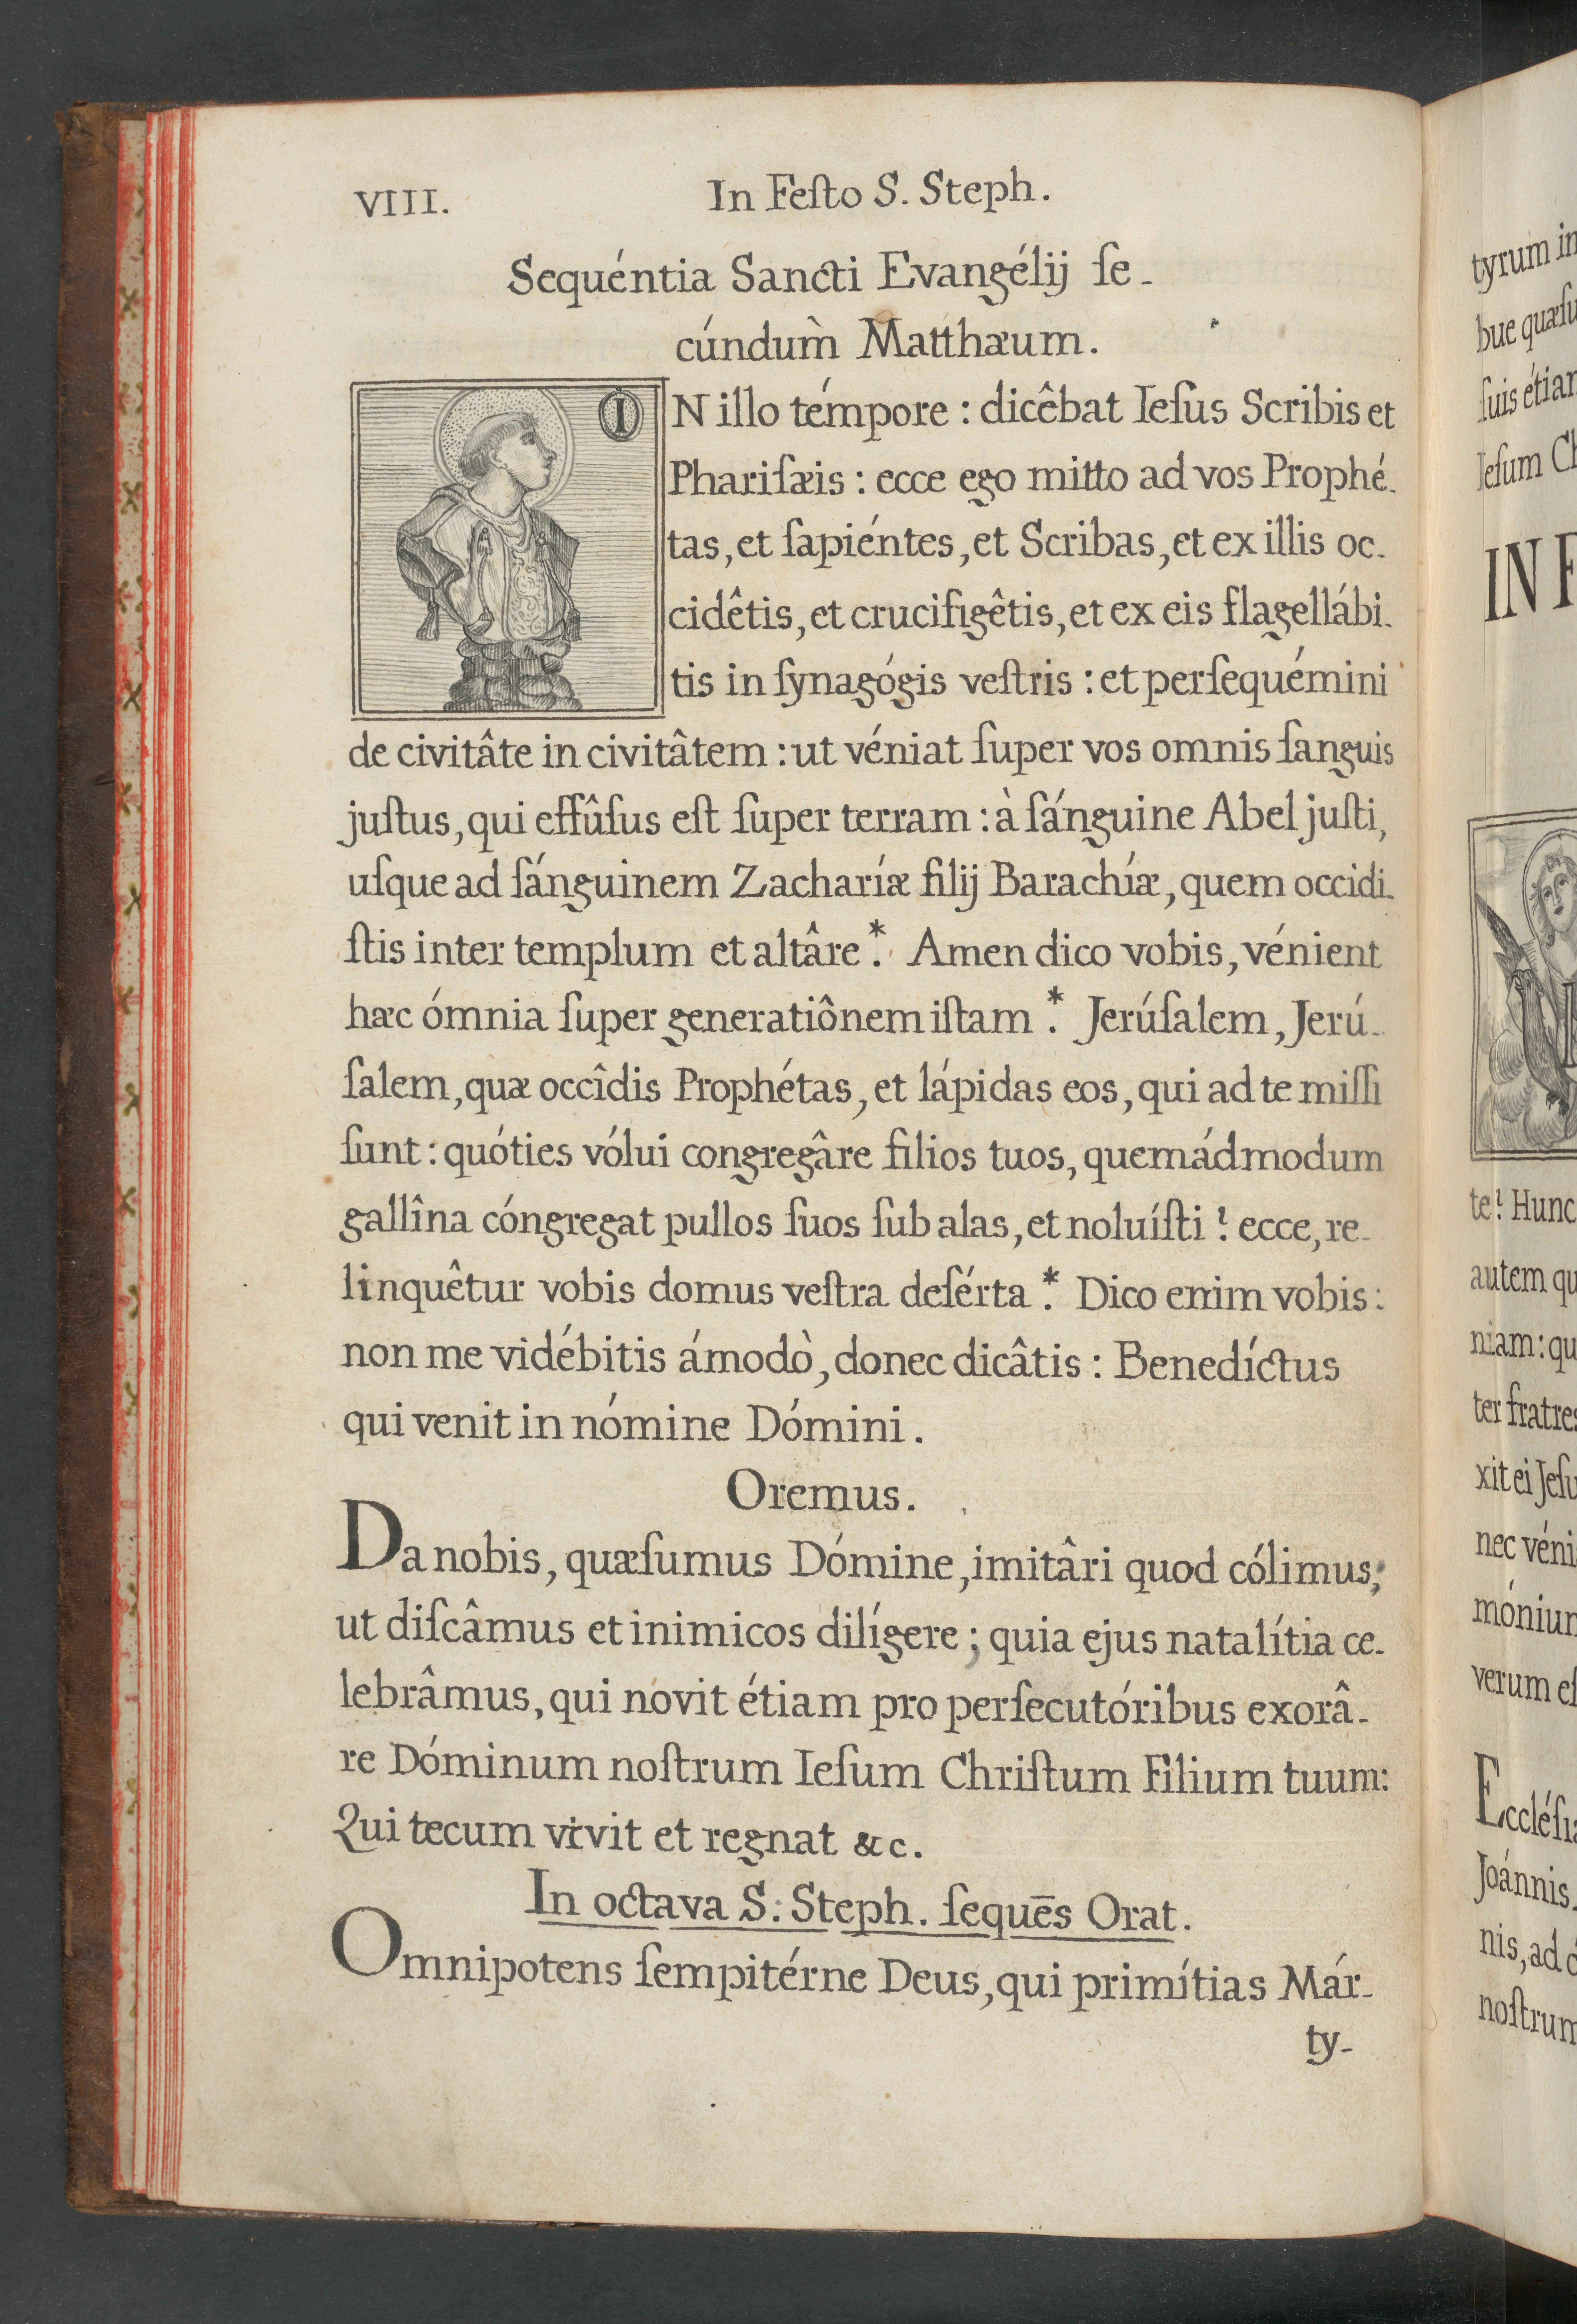 VIII. In Feſto S. Steph.
Sequéntia Sancti Evangélij ſe-
cúndum̀ Matthæum.
IN illo témpore : dicêbat Ieſus Scribis et
Phariſæis : ecce ego mitto ad vos Prophé-
tas, et ſapiéntes, et Scribas, et ex illis oc-
cidêtis, et crucifigêtis, et ex eis flagellábi-
tis in ſynagógis veſtris : et perſequémini
de civitâte in civitâtem : ut véniat ſuper vos omnis ſanguis
juſtus, qui effûſus eſt ſuper terram : à ſánguine Abel juſti,
uſque ad ſánguinem Zacharíæ filij Barachíæ, quem occidi-
ſtis inter templum et altâre.* Amen dico vobis, vénient
hæc ómnia ſuper generatiônem iſtam.* Jerúſalem, Jerú-
ſalem, quæ occîdis Prophétas, et lápidas eos, qui ad te miſſi
ſunt : quóties vólui congregâre filios tuos, quemádmodum
gallîna cóngregat pullos ſuos ſub alas, et noluíſti ? ecce, re-
linquêtur vobis domus veſtra deſérta.* Dico enim vobis :
non me vidébitis ámodò, donec dicâtis : Benedíctus
qui venit in nómine Dómini.
Oremus.
Da nobis, quæſumus Dómine, imitâri quod cólimus;
ut diſcâmus et inimicos dilígere ; quia ejus natalítia ce-
lebrâmus, qui novit étiam pro perſecutóribus exorâ-
re Dóminum noſtrum Ieſum Chriſtum Filium tuum:
Qui tecum vivit et regnat &c.
In octava S. Steph. ſequēs Orat.
Omnipotens ſempitérne Deus, qui primítias Már-
ty-
tyrum in
bue quæſu
ſuis étiam
Jeſum Ch
IN F
te? Hunc
autem qu
niam : qu
ter fratres
xit ei Jeſu
nec véni
mónium
verum eſ
Eccléſia
Joánnis,
nis, ad
noſtrum